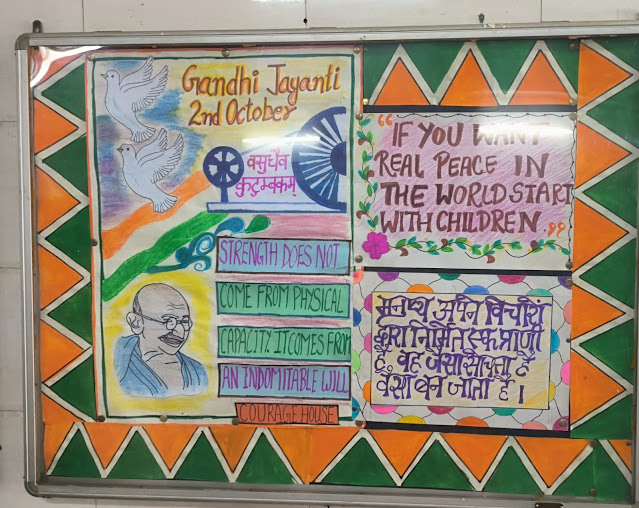 Gandhi Jayanti
2nd October
वसुधैव
कुटुम्बकम्
STRENGTH DOES NOT
COME FROM PHYSICAL
CAPACITY IT COMES FROM
AN INDOMITABLE WILL
COURAGE HOUSE
“IF YOU WANT
REAL PEACE IN
THE WORLD START
WITH CHILDREN.”
मनुष्य अपने विचारों
द्वारा निर्मित एक प्राणी
है, वह जैसा सोचता है
वैसा बन जाता है।